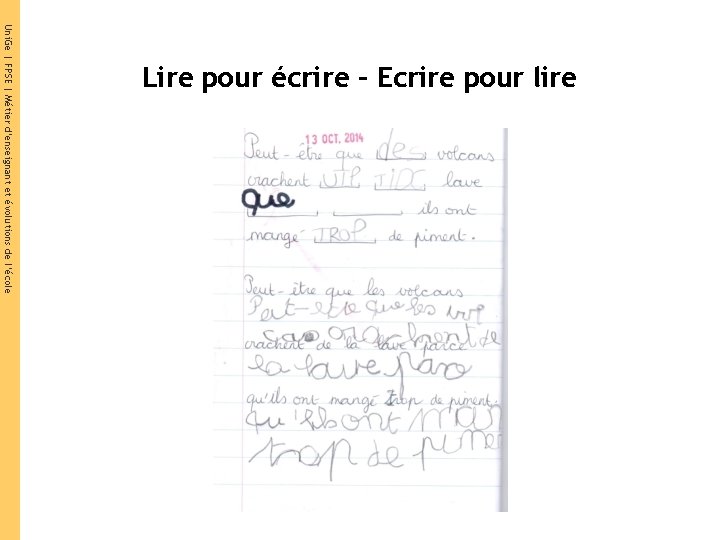 UniGe | FPSE | Métier d'enseignant et évolutions de l'école
Lire pour écrire – Ecrire pour lire
13 OCT. 2014
Peut-être que des volcans
crachent lave
que ils ont
mangé TROP de piment.
Peut-être que les volcans
Peut-être que les vol
crachent de la lave parce
crachent de
la lave parc
qu'ils ont mangé trop de piment.
qu'ils ont man
trop de pimen